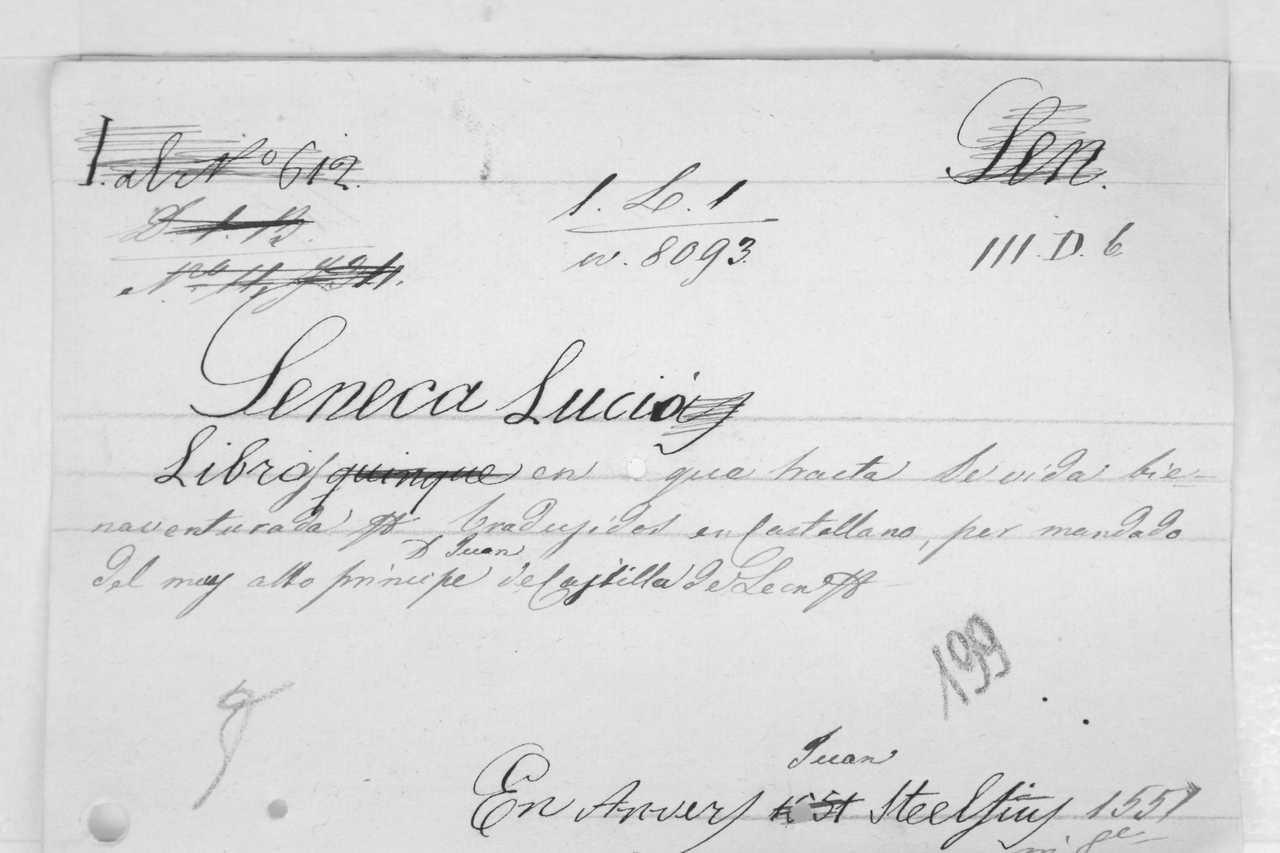 I. ab No 612.
Sen.
D. 1. B.
1. L. 1
w. 8093.
III. D. 6
Seneca Lucio
Libros quinque en que tracta de vida bie-
naventurada traduzidos en Castellano, per mandado
del muy alto principe D Juan de Castilla de Leon
199
Juan
En Anvers Steelsius 1551